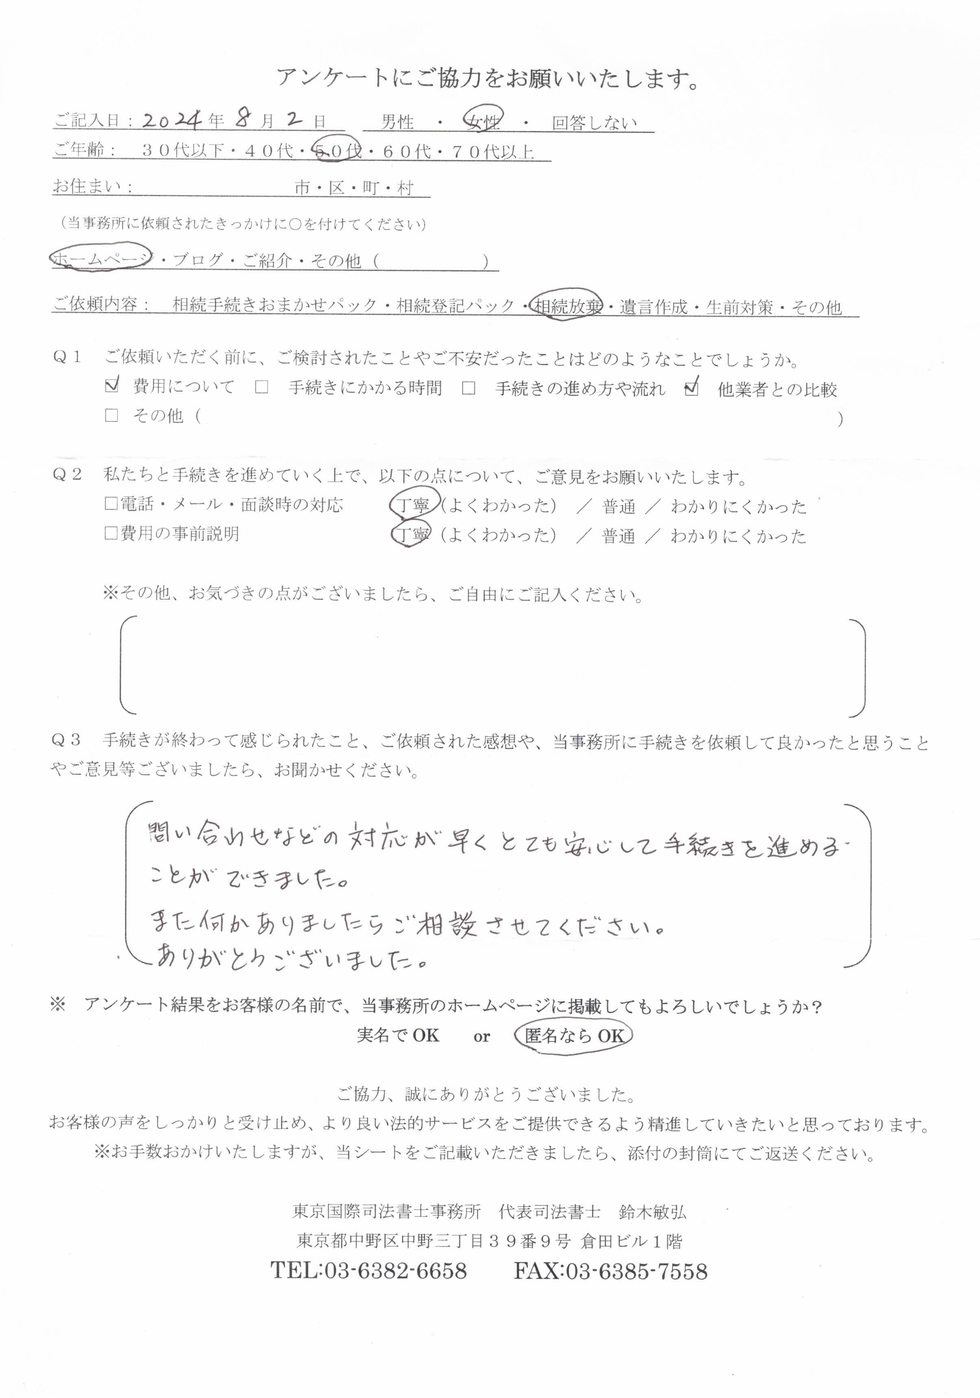 アンケートにご協力をお願いいたします。
ご記入日：2024年 8月 2日　男性　・　女性　・　回答しない
ご年齢：　３０代以下・４０代・５０代・６０代・７０代以上
お住まい：　　　　　　　　　市・区・町・村
（当事務所に依頼されたきっかけに○を付けてください）
ホームページ・ブログ・ご紹介・その他（　　　　　　）
ご依頼内容：　相続手続きおまかせパック・相続登記パック・相続放棄・遺言作成・生前対策・その他
Ｑ１　ご依頼いただく前に、ご検討されたことやご不安だったことはどのようなことでしょうか。
☑ 費用について　□ 手続きにかかる時間　□ 手続きの進め方や流れ　☑ 他業者との比較
□ その他（　　　　　　　　　　　　　　　　　　　　　　）
Ｑ２　私たちと手続きを進めていく上で、以下の点について、ご意見をお願いいたします。
□電話・メール・面談時の対応　　丁寧（よくわかった）　／　普通　／　わかりにくかった
□費用の事前説明　　丁寧（よくわかった）　／　普通　／　わかりにくかった
※その他、お気づきの点がございましたら、ご自由にご記入ください。
Ｑ３　手続きが終わって感じられたこと、ご依頼された感想や、当事務所に手続きを依頼して良かったと思うこと
やご意見等ございましたら、お聞かせください。
問い合わせなどの対応が早くとても安心して手続きを進める
ことができました。
また何かありましたらご相談させてください。
ありがとうございました。
※　アンケート結果をお客様の名前で、当事務所のホームページに掲載してもよろしいでしょうか？
実名でOK　　or　　匿名ならOK
ご協力、誠にありがとうございました。
お客様の声をしっかりと受け止め、より良い法的サービスをご提供できるよう精進していきたいと思っております。
※お手数おかけいたしますが、当シートをご記載いただきましたら、添付の封筒にてご返送ください。
東京国際司法書士事務所　代表司法書士　鈴木敏弘
東京都中野区中野三丁目３９番９号 倉田ビル１階
TEL:03-6382-6658　　FAX:03-6385-7558